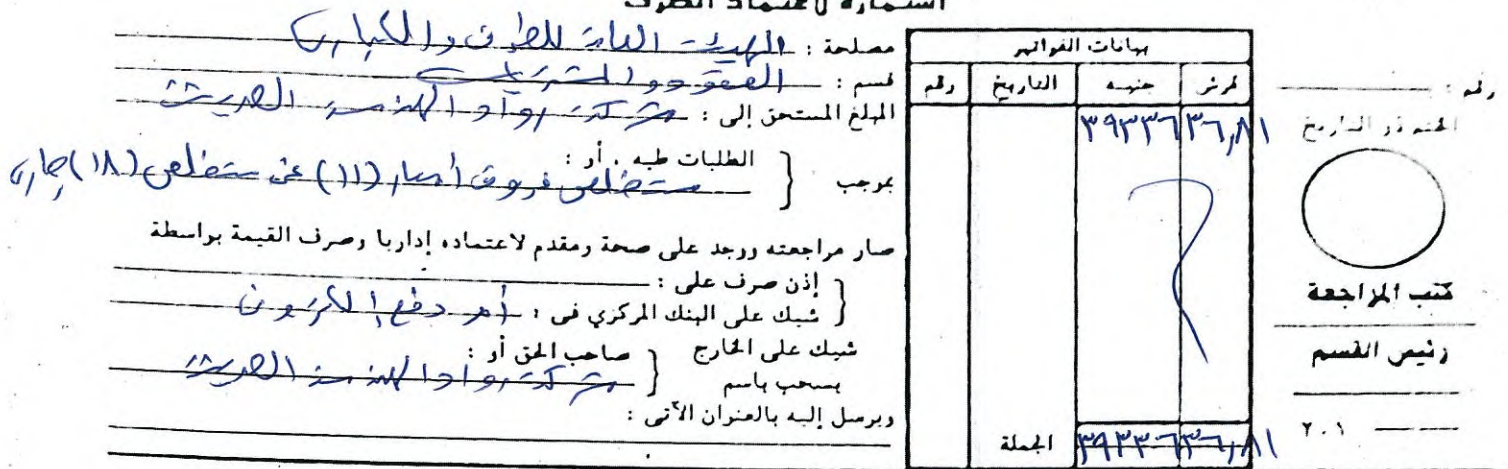 استمارة لاعتماد الصرف
مصلحة : الهيئة العامة للطرق والكبارى
قسم : العقود والمشتريات
المبلغ المستحق إلى : شركة رواد الهندسة الحديثة
بموجب { الطلبات طيه . أو : مستخلص فروق أسعار (١١) عن مستخلص (١٨) جارى
صار مراجعته ووجد على صحة ومقدم لاعتماده إداريا وصرف القيمة بواسطة
إذن صرف على :
شبك على البنك المركزي فى : أمر دفع الكترونى
شبك على الخارج { صاحب الحق أو :
يسحب باسم شركة رواد الهندسة الحديثة
ويرسل إليه بالعنوان الآتى :
بيانات الفواتير
قرش جنيه التاريخ رقم
٣٩٣٣٦ ٣٦,٨١
الجملة ٣٩٣٣٦ ٣٦,٨١
رقم :
الختم ذو التاريخ
كتب المراجعة
رئيس القسم
٢٠١